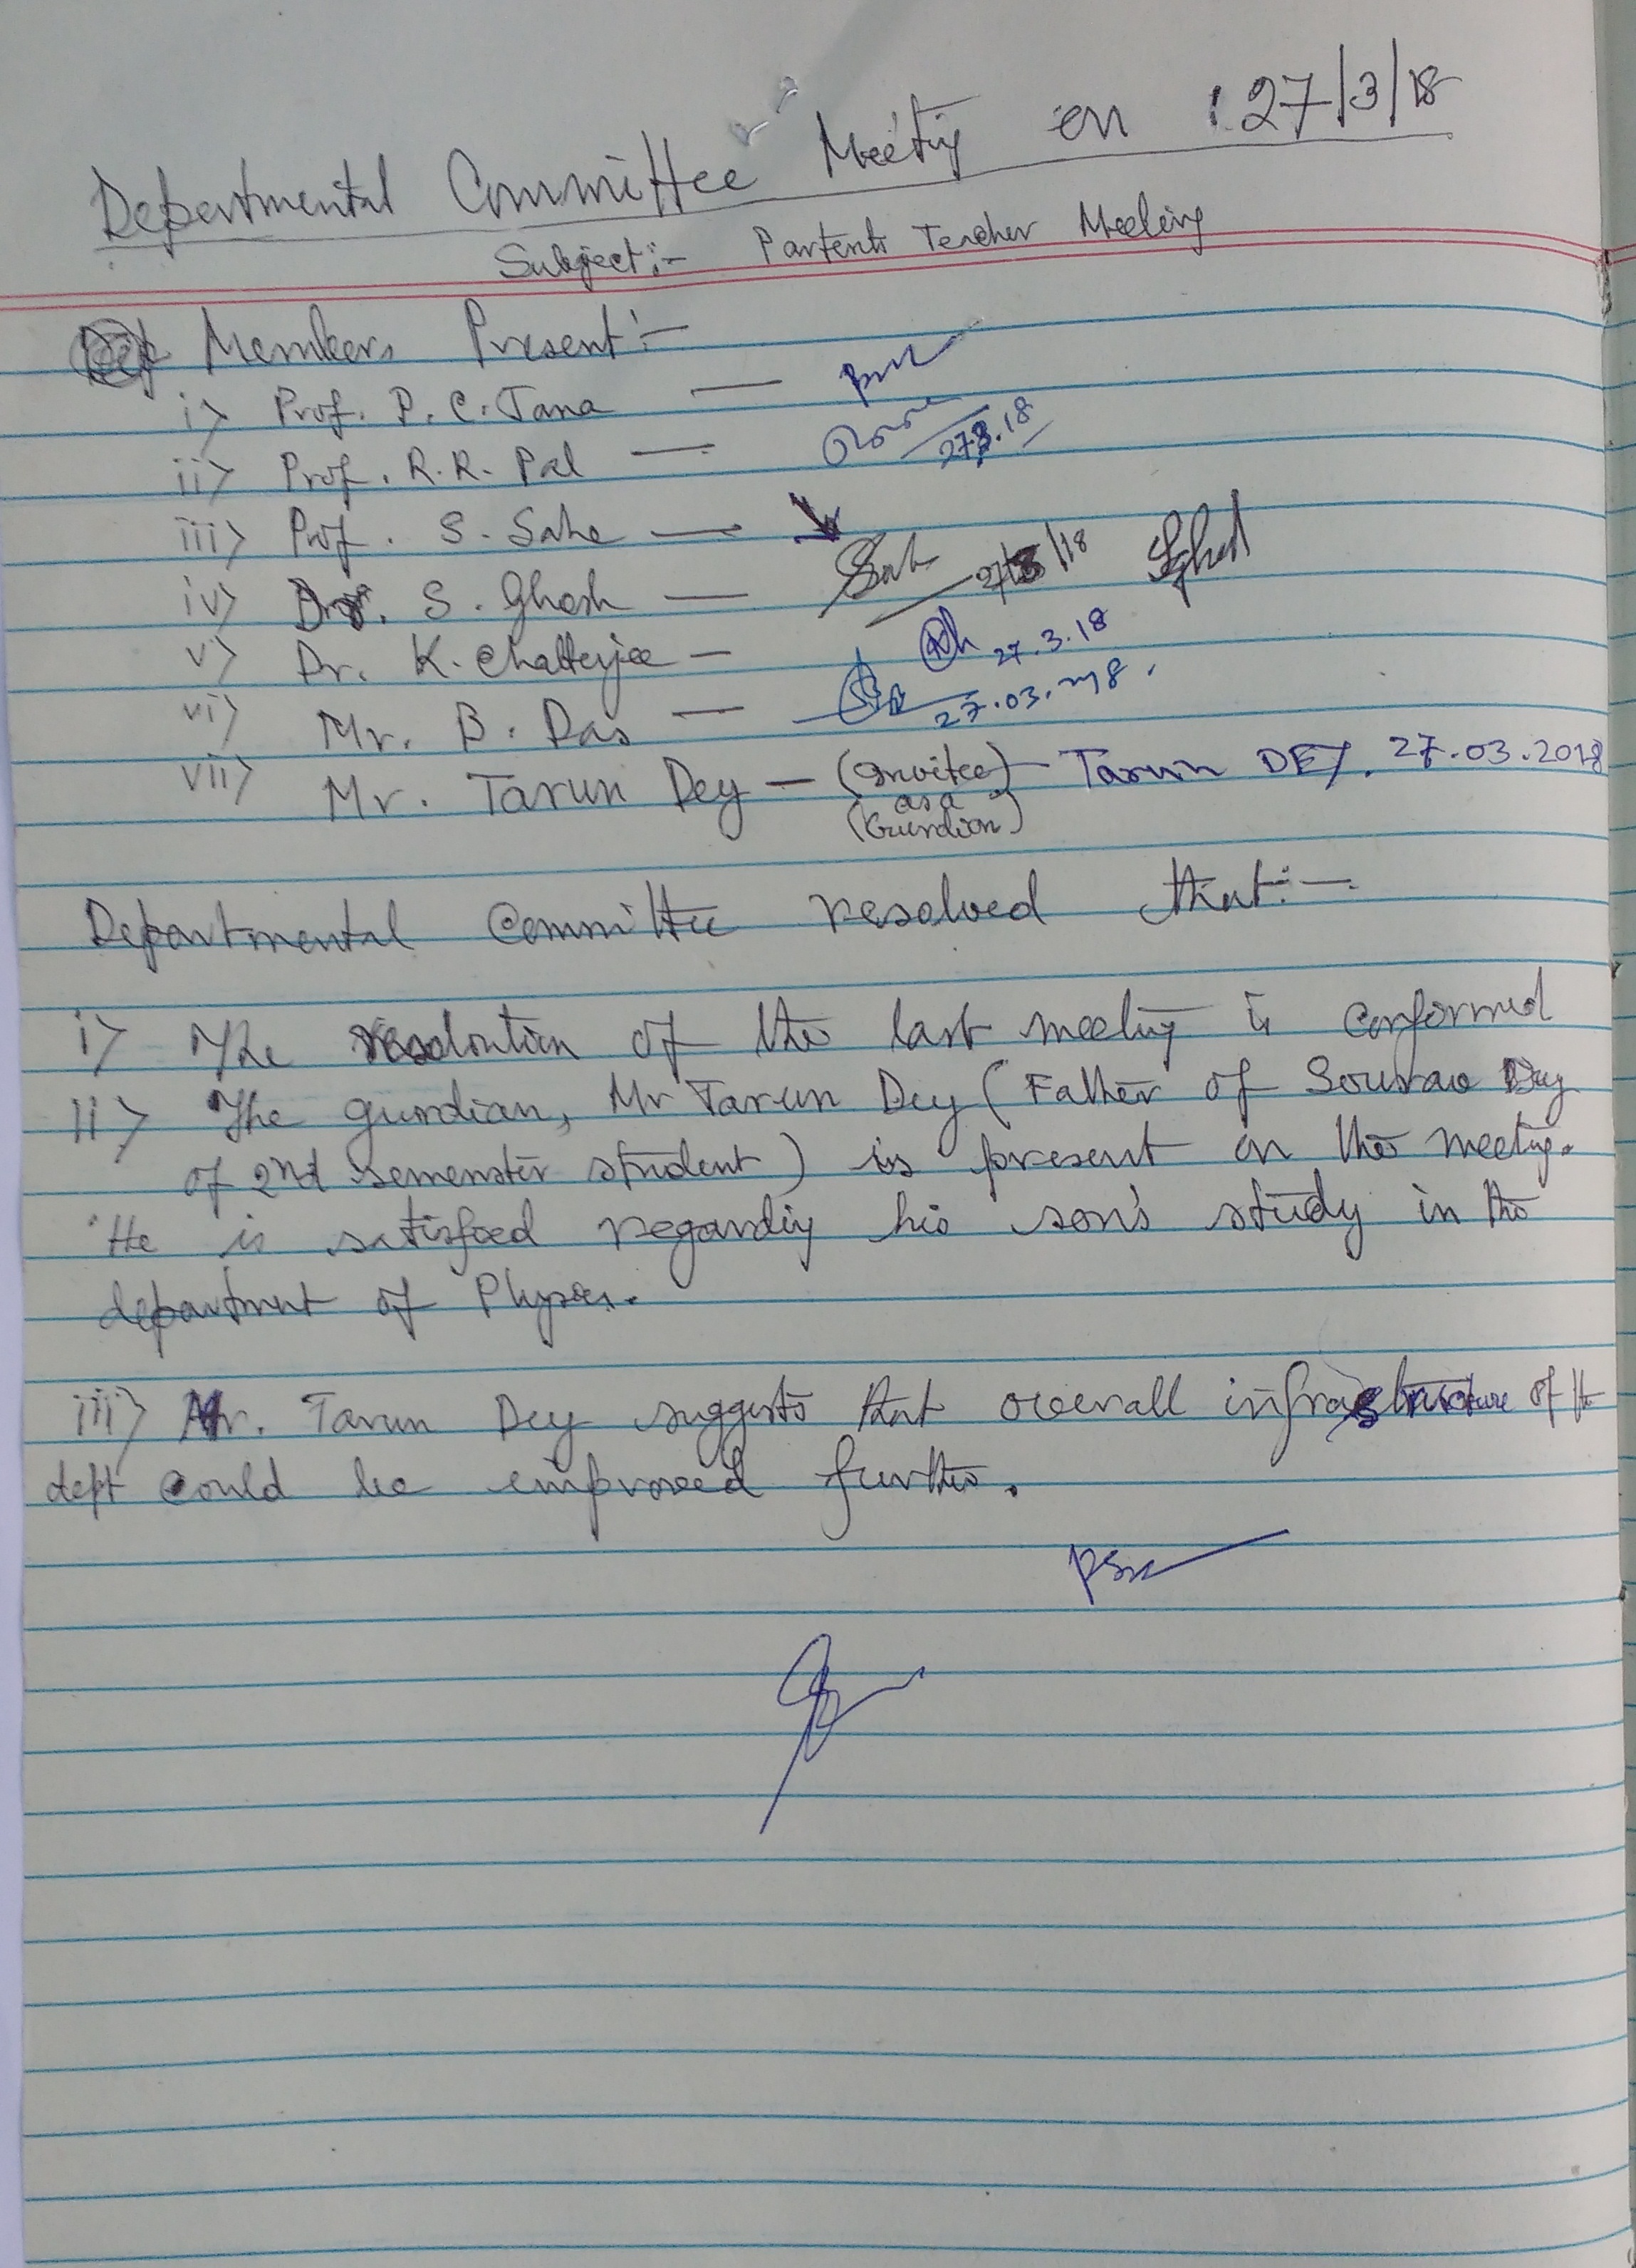 Departmental Committee Meeting on : 27/3/18
Subject:- Partents Teacher Meeting
Members Present:-
i> Prof. P. C. Jana —
ii> Prof. R. R. Pal — 27.3.18
iii> Prof. S. Saha —
iv> Dr. S. Ghosh — 27/3/18
v> Dr. K. Chatterjee — 27.3.18
vi> Mr. B. Das — 27.03.
vii> Mr. Tarun Dey — (Invitee) — Tarun DEY. 27.03.2018
as a
(Gurdian)
Departmental Committee resolved that:—
i> The resolution of the last meeting is conformed
ii> The gurdian, Mr Tarun Dey (Father of Sourav Dey
of 2nd semenster student) is present on the meeting.
He is satisfied regarding his son's study in the
department of Physics.
iii> Mr. Tarun Dey suggests that overall infrastructure of the
dept could be improved further.